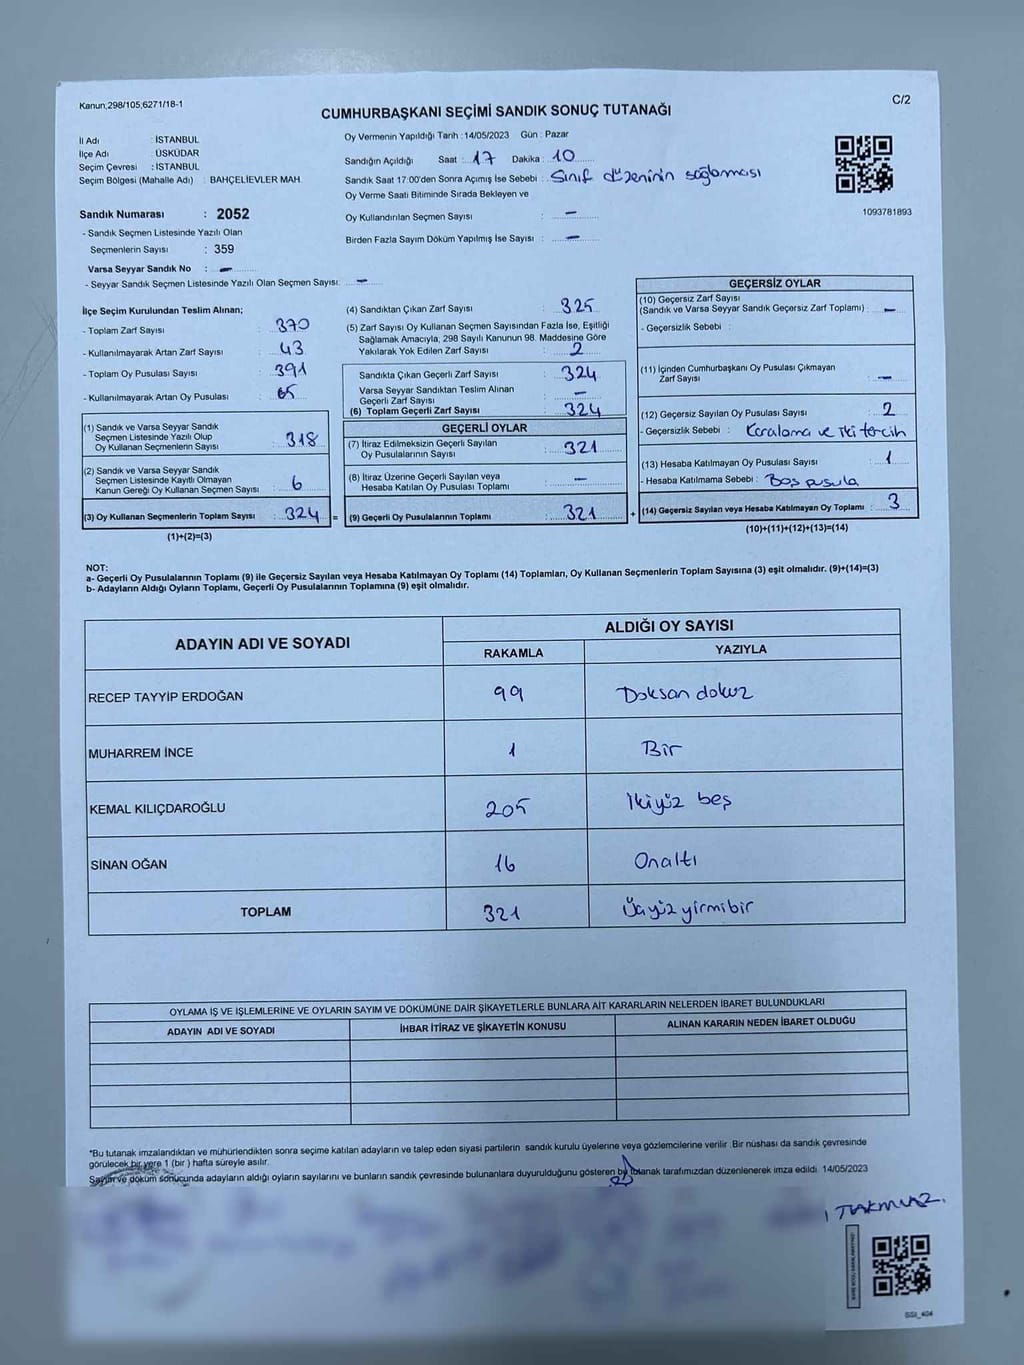 Kanun;298/105;6271/18-1
C/2
CUMHURBAŞKANI SEÇİMİ SANDIK SONUÇ TUTANAĞI
İl Adı : İSTANBUL
İlçe Adı : ÜSKÜDAR
Seçim Çevresi : İSTANBUL
Seçim Bölgesi (Mahalle Adı) : BAHÇELİEVLER MAH.
Oy Vermenin Yapıldığı Tarih : 14/05/2023 Gün : Pazar
Sandığın Açıldığı Saat : 17 Dakika : 10
Sandık Saat 17:00'den Sonra Açılmış İse Sebebi : Sınıf düzeninin sağlaması
Oy Verme Saati Bitiminde Sırada Bekleyen ve
Oy Kullandırılan Seçmen Sayısı : —
Birden Fazla Sayım Döküm Yapılmış İse Sayısı : —
1093781893
Sandık Numarası : 2052
- Sandık Seçmen Listesinde Yazılı Olan
Seçmenlerin Sayısı : 359
Varsa Seyyar Sandık No : —
- Seyyar Sandık Seçmen Listesinde Yazılı Olan Seçmen Sayısı: —
İlçe Seçim Kurulundan Teslim Alınan;
- Toplam Zarf Sayısı : 370
- Kullanılmayarak Artan Zarf Sayısı : 43
- Toplam Oy Pusulası Sayısı : 391
- Kullanılmayarak Artan Oy Pusulası : 65
(1) Sandık ve Varsa Seyyar Sandık
Seçmen Listesinde Yazılı Olup
Oy Kullanan Seçmenlerin Sayısı : 318
(2) Sandık ve Varsa Seyyar Sandık
Seçmen Listesinde Kayıtlı Olmayan
Kanun Gereği Oy Kullanan Seçmen Sayısı : 6
(3) Oy Kullanan Seçmenlerin Toplam Sayısı : 324
(1)+(2)=(3)
(4) Sandıktan Çıkan Zarf Sayısı : 325
(5) Zarf Sayısı Oy Kullanan Seçmen Sayısından Fazla İse, Eşitliği
Sağlamak Amacıyla, 298 Sayılı Kanunun 98. Maddesine Göre
Yakılarak Yok Edilen Zarf Sayısı : 2
Sandıkta Çıkan Geçerli Zarf Sayısı : 324
Varsa Seyyar Sandıktan Teslim Alınan
Geçerli Zarf Sayısı : —
(6) Toplam Geçerli Zarf Sayısı : 324
GEÇERLİ OYLAR
(7) İtiraz Edilmeksizin Geçerli Sayılan
Oy Pusulalarının Sayısı : 321
(8) İtiraz Üzerine Geçerli Sayılan veya
Hesaba Katılan Oy Pusulası Toplamı : —
= (9) Geçerli Oy Pusulalarının Toplamı : 321
GEÇERSİZ OYLAR
(10) Geçersiz Zarf Sayısı
(Sandık ve Varsa Seyyar Sandık Geçersiz Zarf Toplamı) : —
- Geçersizlik Sebebi :
(11) İçinden Cumhurbaşkanı Oy Pusulası Çıkmayan
Zarf Sayısı : —
(12) Geçersiz Sayılan Oy Pusulası Sayısı : 2
- Geçersizlik Sebebi : Karalama ve iki tercih
(13) Hesaba Katılmayan Oy Pusulası Sayısı : 1
- Hesaba Katılmama Sebebi : Boş pusula
+ (14) Geçersiz Sayılan veya Hesaba Katılmayan Oy Toplamı : 3
(10)+(11)+(12)+(13)=(14)
NOT:
a- Geçerli Oy Pusulalarının Toplamı (9) ile Geçersiz Sayılan veya Hesaba Katılmayan Oy Toplamı (14) Toplamları, Oy Kullanan Seçmenlerin Toplam Sayısına (3) eşit olmalıdır. (9)+(14)=(3)
b- Adayların Aldığı Oyların Toplamı, Geçerli Oy Pusulalarının Toplamına (9) eşit olmalıdır.
ADAYIN ADI VE SOYADI
ALDIĞI OY SAYISI
RAKAMLA YAZIYLA
RECEP TAYYİP ERDOĞAN 99 Doksan dokuz
MUHARREM İNCE 1 Bir
KEMAL KILIÇDAROĞLU 205 İkiyüz beş
SİNAN OĞAN 16 Onaltı
TOPLAM 321 Üçyüz yirmibir
OYLAMA İŞ VE İŞLEMLERİNE VE OYLARIN SAYIM VE DÖKÜMÜNE DAİR ŞİKAYETLERLE BUNLARA AİT KARARLARIN NELERDEN İBARET BULUNDUKLARI
ADAYIN ADI VE SOYADI İHBAR İTİRAZ VE ŞİKAYETİN KONUSU ALINAN KARARIN NEDEN İBARET OLDUĞU
*Bu tutanak imzalandıktan ve mühürlendikten sonra seçime katılan adayların ve talep eden siyasi partilerin sandık kurulu üyelerine veya gözlemcilerine verilir. Bir nüshası da sandık çevresinde
görülecek bir yere 1 (bir ) hafta süreyle asılır.
Sayım ve döküm sonucunda adayların aldığı oyların sayılarını ve bunların sandık çevresinde bulunanlara duyurulduğunu gösteren bu tutanak tarafımızdan düzenlenerek imza edildi. 14/05/2023
SSI_404